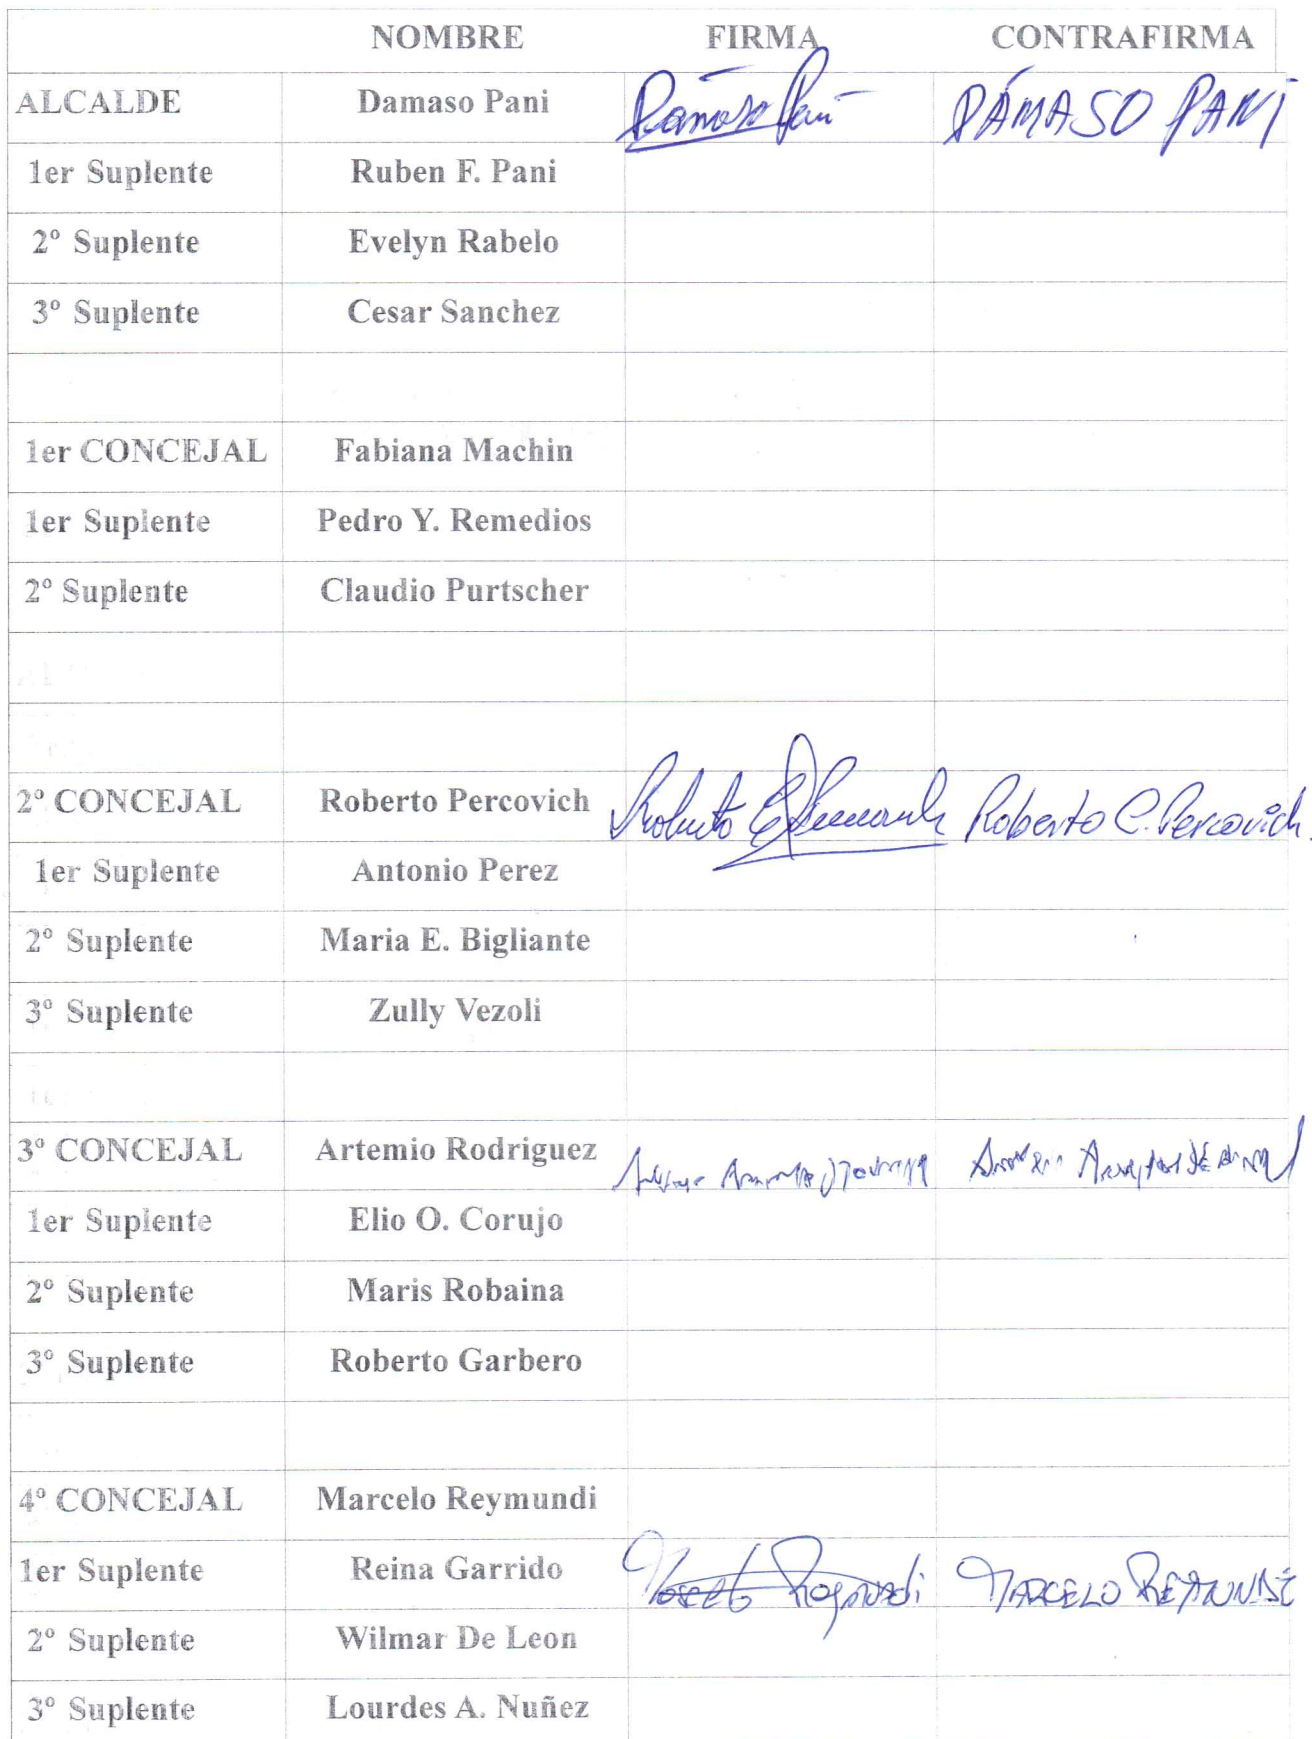 NOMBRE FIRMA CONTRAFIRMA
ALCALDE Damaso Pani Damaso Pani DÁMASO PANI
1er Suplente Ruben F. Pani
2º Suplente Evelyn Rabelo
3º Suplente Cesar Sanchez
1er CONCEJAL Fabiana Machin
1er Suplente Pedro Y. Remedios
2º Suplente Claudio Purtscher
2º CONCEJAL Roberto Percovich Roberto Roberto C. Percovich.
1er Suplente Antonio Perez
2º Suplente Maria E. Bigliante
3º Suplente Zully Vezoli
3º CONCEJAL Artemio Rodriguez
1er Suplente Elio O. Corujo
2º Suplente Maris Robaina
3º Suplente Roberto Garbero
4º CONCEJAL Marcelo Reymundi
1er Suplente Reina Garrido Marcelo Reymundi MARCELO REYMUNDI
2º Suplente Wilmar De Leon
3º Suplente Lourdes A. Nuñez